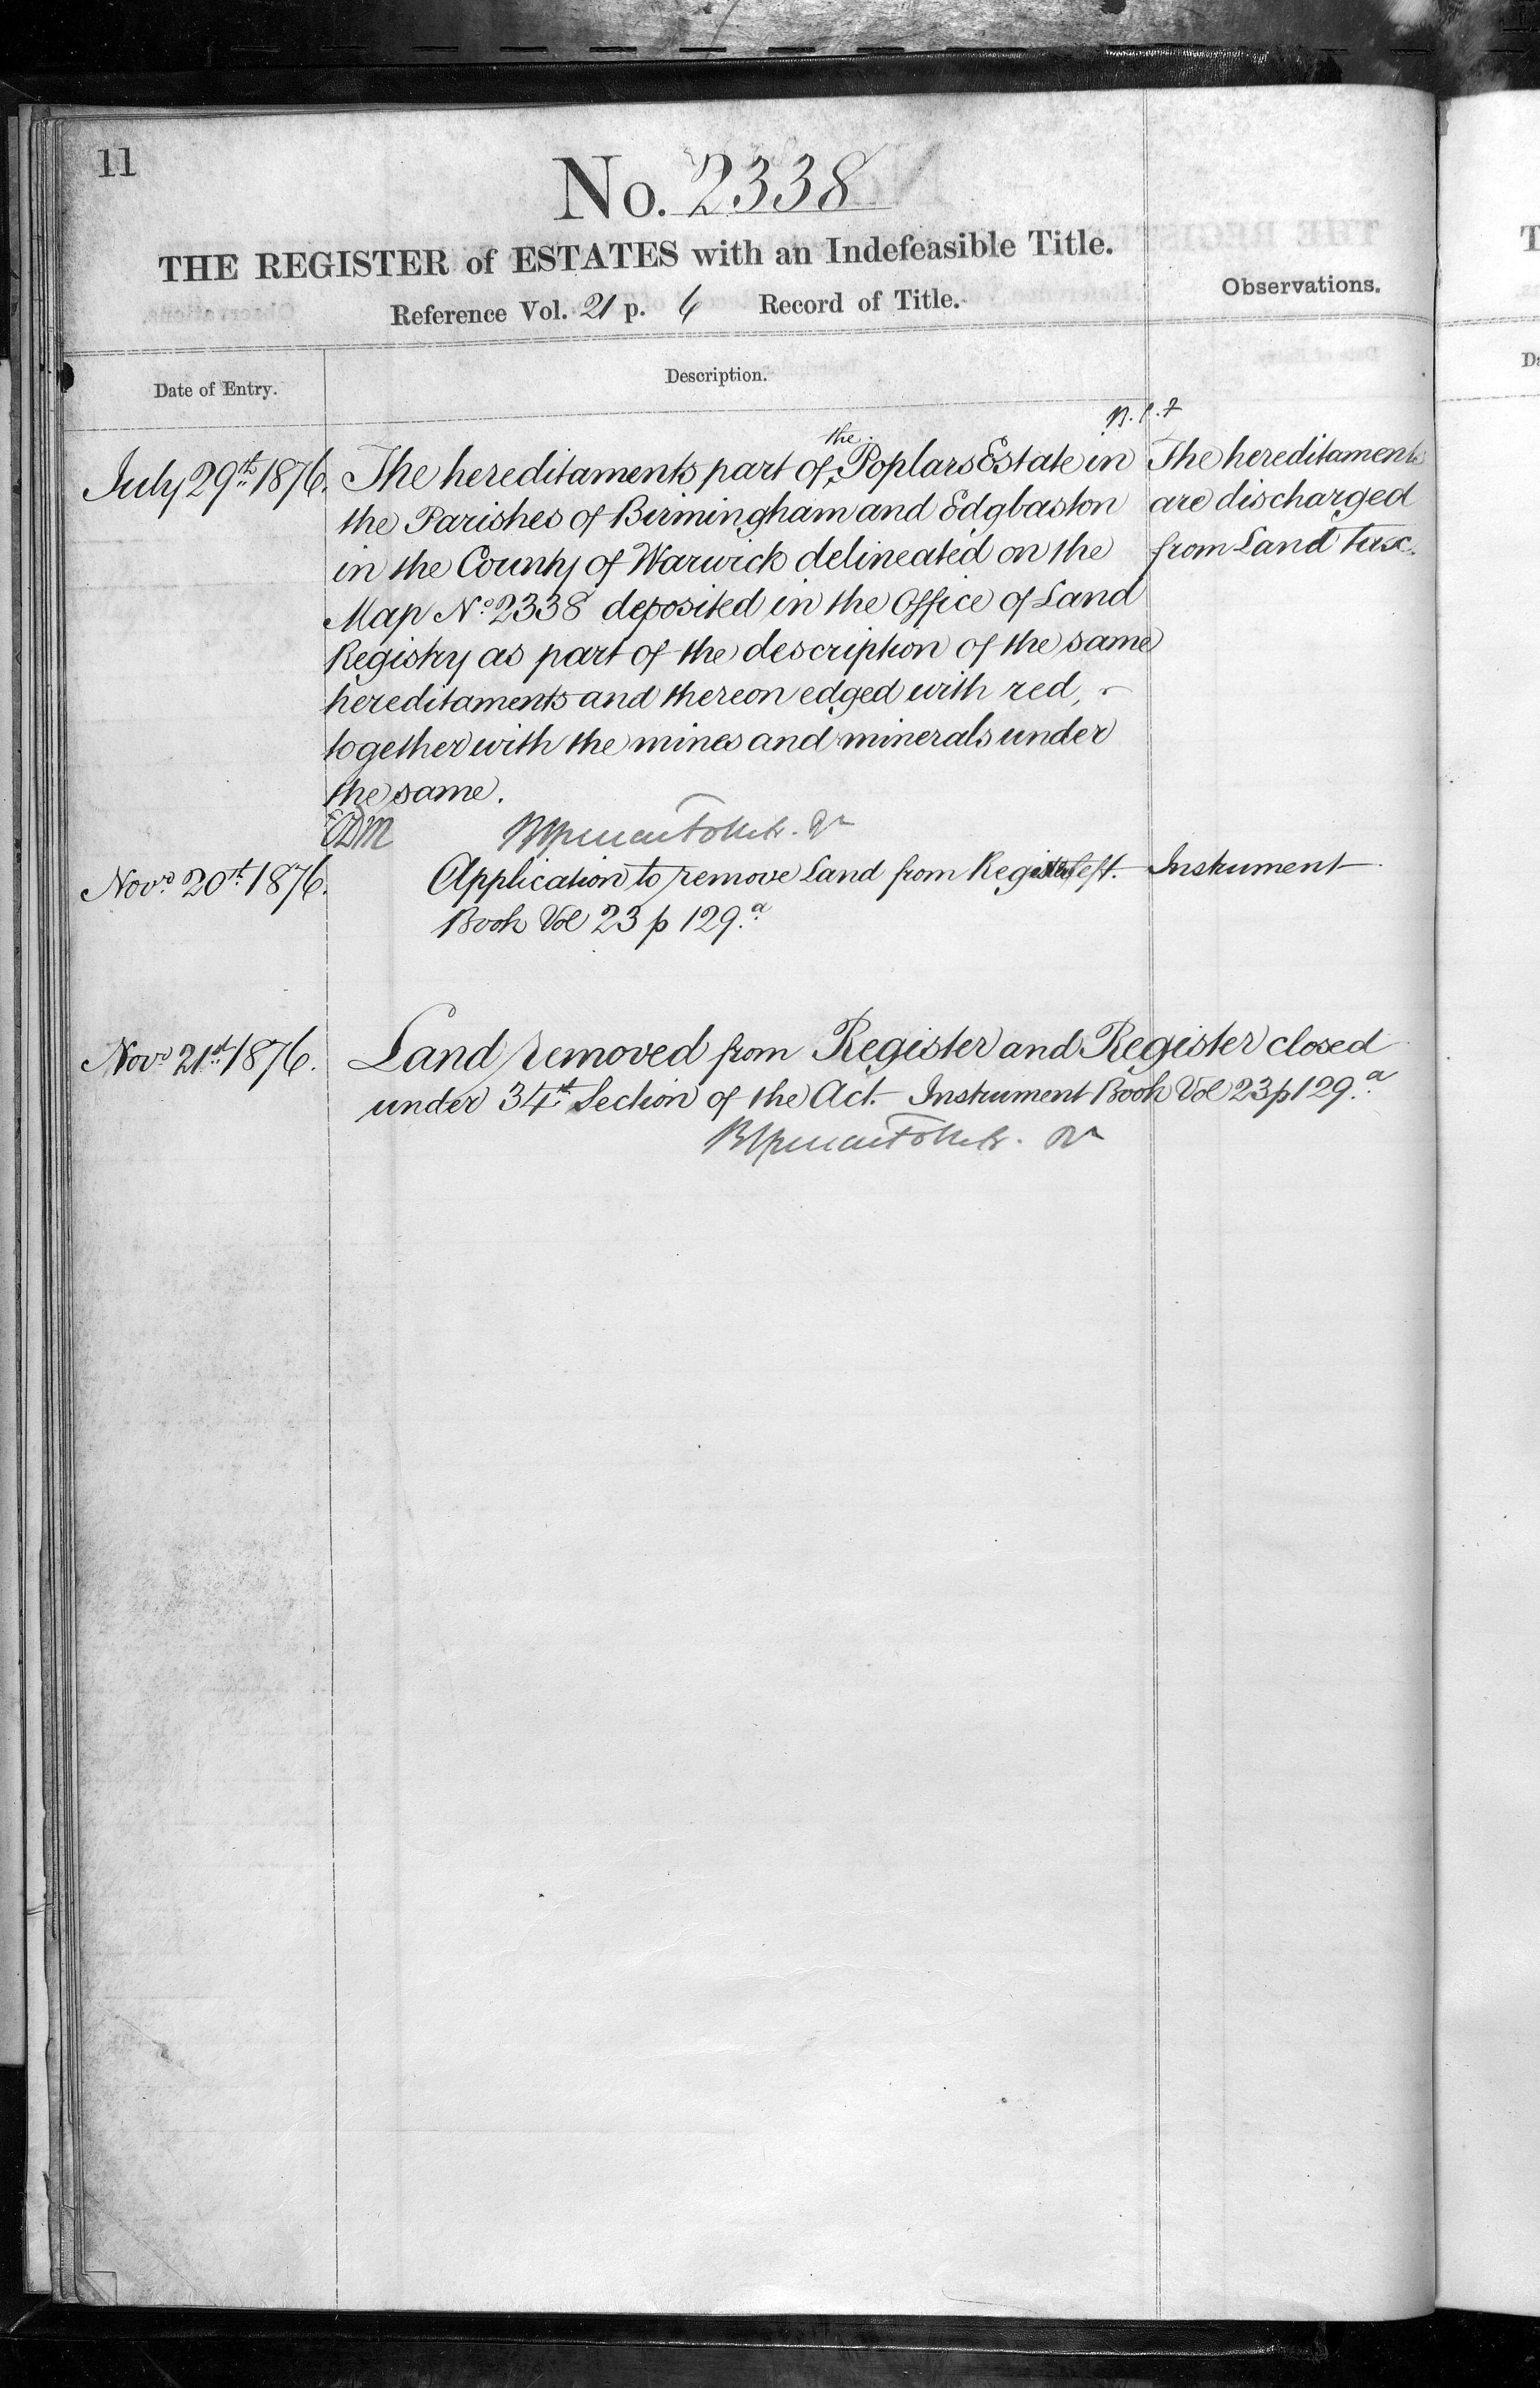 11
No. 2338
THE REGISTER of ESTATES with an Indefeasible Title.
Reference Vol. 21 p. 6 Record of Title.
Observations.
Date of Entry.
Description.
July 29th 1876. The hereditaments part of the Poplars Estate in
the Parishes of Birmingham and Edgbaston
in the County of Warwick delineated on the
Map No 2338 deposited in the Office of Land
Registry as part of the description of the same
hereditaments and thereon edged with red,
together with the mines and minerals under
the same.
The hereditaments
are discharged
from Land Tax.
Novr 20th 1876. Application to remove Land from Register left. Instrument
Book Vol 23 p 129.a
Novr 21st 1876. Land removed from Register and Register closed
under 34th Section of the Act. Instrument Book Vol 23 p 129.a